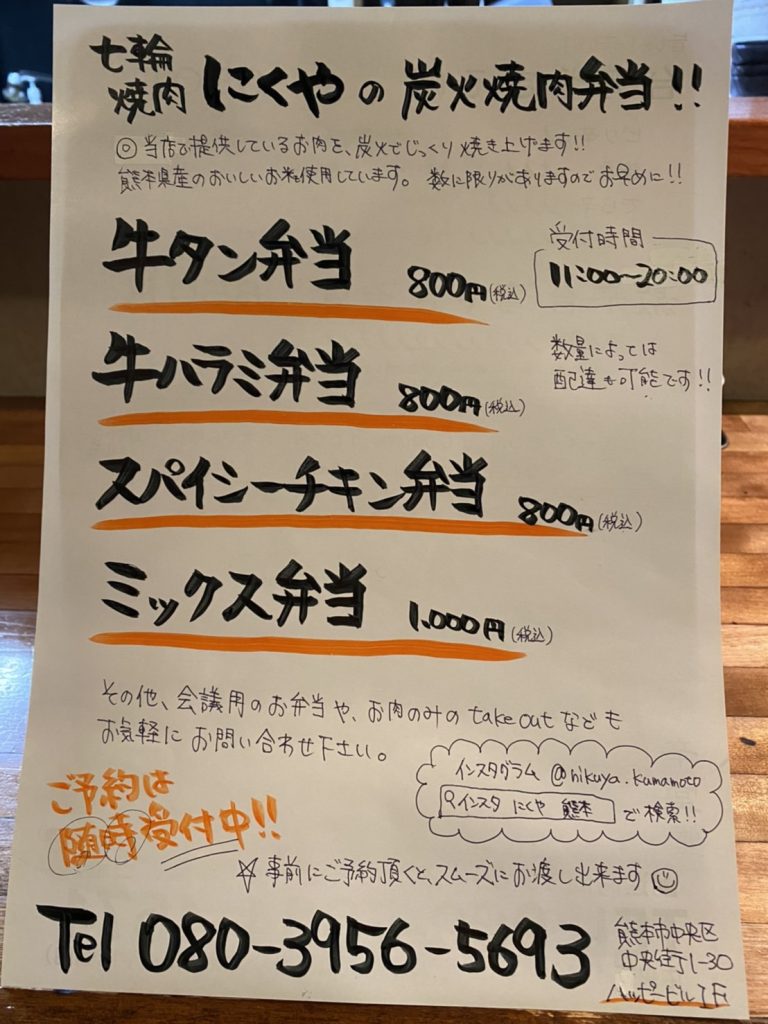 七輪焼肉 にくやの 炭火焼肉弁当!!
◎当店で提供しているお肉を、炭火でじっくり焼き上げます!!
熊本県産のおいしいお米を使用しています。数に限りがありますのでお早めに!!
牛タン弁当 800円(税込)
受付時間
11:00〜20:00
牛ハラミ弁当 800円(税込)
数量によっては
配達も可能です!!
スパイシーチキン弁当 800円(税込)
ミックス弁当 1,000円(税込)
その他、会議用のお弁当や、お肉のみのtake outなども
お気軽にお問い合わせ下さい。
インスタグラム @nikuya.kumamoto
インスタ にくや 熊本 で検索!!
ご予約は
随時受付中!!
☆事前にご予約頂くと、スムーズにお渡し出来ます
Tel 080-3956-5693
熊本市中央区
中央街1-30
ハッピービル1F